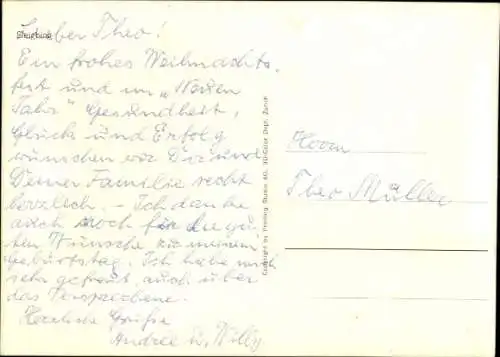 Lieber Theo!
Ein frohes Weihnachts-
fest und im "Neuen
Jahr" Gesundheit,
Glück und Erfolg
wünschen wir Dir und
Deiner Familie recht
herzlich. - Ich danke
auch noch für die gu-
ten Wünsche zu meinem
Geburtstag. Ich habe mich
sehr gefreut, auch über
das Versprechene.
Herzliche Grüße
Andree u. Willy
Copyright by Printing Studio AG, 3D-Color Dept. Zürich
Herrn
Theo Müller